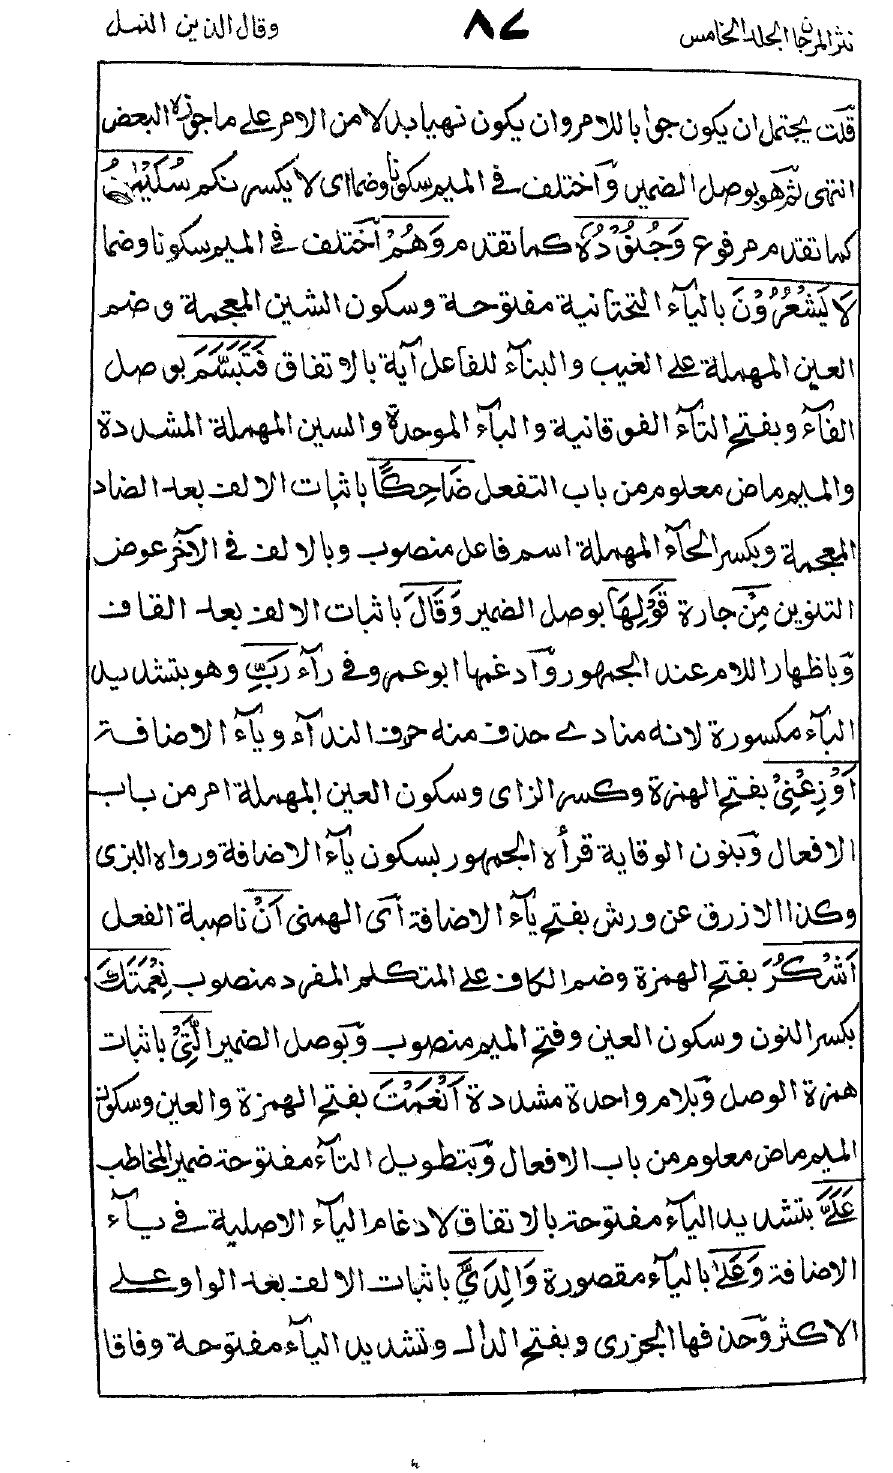 نثر المرجان الجلد الخامس ٨٧ وقال الذين النمل
قلت يحتمل ان يكون جوابا للامر وان يكون نهيا بدلا من الامر على ما جوزه البعض
انتهى ثم هو بوصل الضمير وَاختلف فى الميم سكونا وضما اى لا يكسرنكم سُلَيْمٰنُ
كما تقدم مرفوع وَجُنُوْدُهٗ كما تقدم وَهُمْ اختلف فى الميم سكونا وضما
لَا يَشْعُرُوْنَ بالياء التحتانية مفتوحة وسكون الشين المعجمة وضم
العين المهملة على الغيب والبناء للفاعل آية بالاتفاق فَتَبَسَّمَ بوصل
الفاء وبفتح التاء الفوقانية والباء الموحدة والسين المهملة المشددة
والميم ماض معلوم من باب التفعل ضَاحِكًا باثبات الالف بعد الضاد
المعجمة وبكسر الحاء المهملة اسم فاعل منصوب وبالالف فى الآخر عوض
التنوين مِنْ جارة قَوْلِهَا بوصل الضمير وَقَالَ باثبات الالف بعد القاف
وَباظهار اللام عند الجمهور وَادغمها ابو عمرو فى راء رَبِّ وهو بتشديد
الباء مكسورة لانه منادے حذف منه حرف النداء وياء الاضافة
اَوْزِعْنِىْ بفتح الهمزة وكسر الزاى وسكون العين المهملة امر من باب
الافعال وَبنون الوقاية قرأه الجمهور بسكون ياء الاضافة ورواه البزى
وكذا الازرق عن ورش بفتح ياء الاضافة اَى الهمنى اَنْ ناصبة الفعل
اَشْكُرَ بفتح الهمزة وضم الكاف على المتكلم المفرد منصوب نِعْمَتَكَ
بكسر النون وسكون العين وفتح الميم منصوب وَبوصل الضمير الَّتِىْ باثبات
همزة الوصل وَبلام واحدة مشددة اَنْعَمْتَ بفتح الهمزة والعين وسكون
الميم ماض معلوم من باب الافعال وَبتطويل التاء مفتوحة ضمير المخاطب
عَلَىَّ بتشديد الياء مفتوحة بالاتفاق لادغام الياء الاصلية فى ياء
الاضافة وَعَلٰى بالياء مقصورة وَالِدَىَّ باثبات الالف بعد الواو على
الاكثر وَحذفها الجزرى وبفتح الدال وتشديد الياء مفتوحة وفاقا